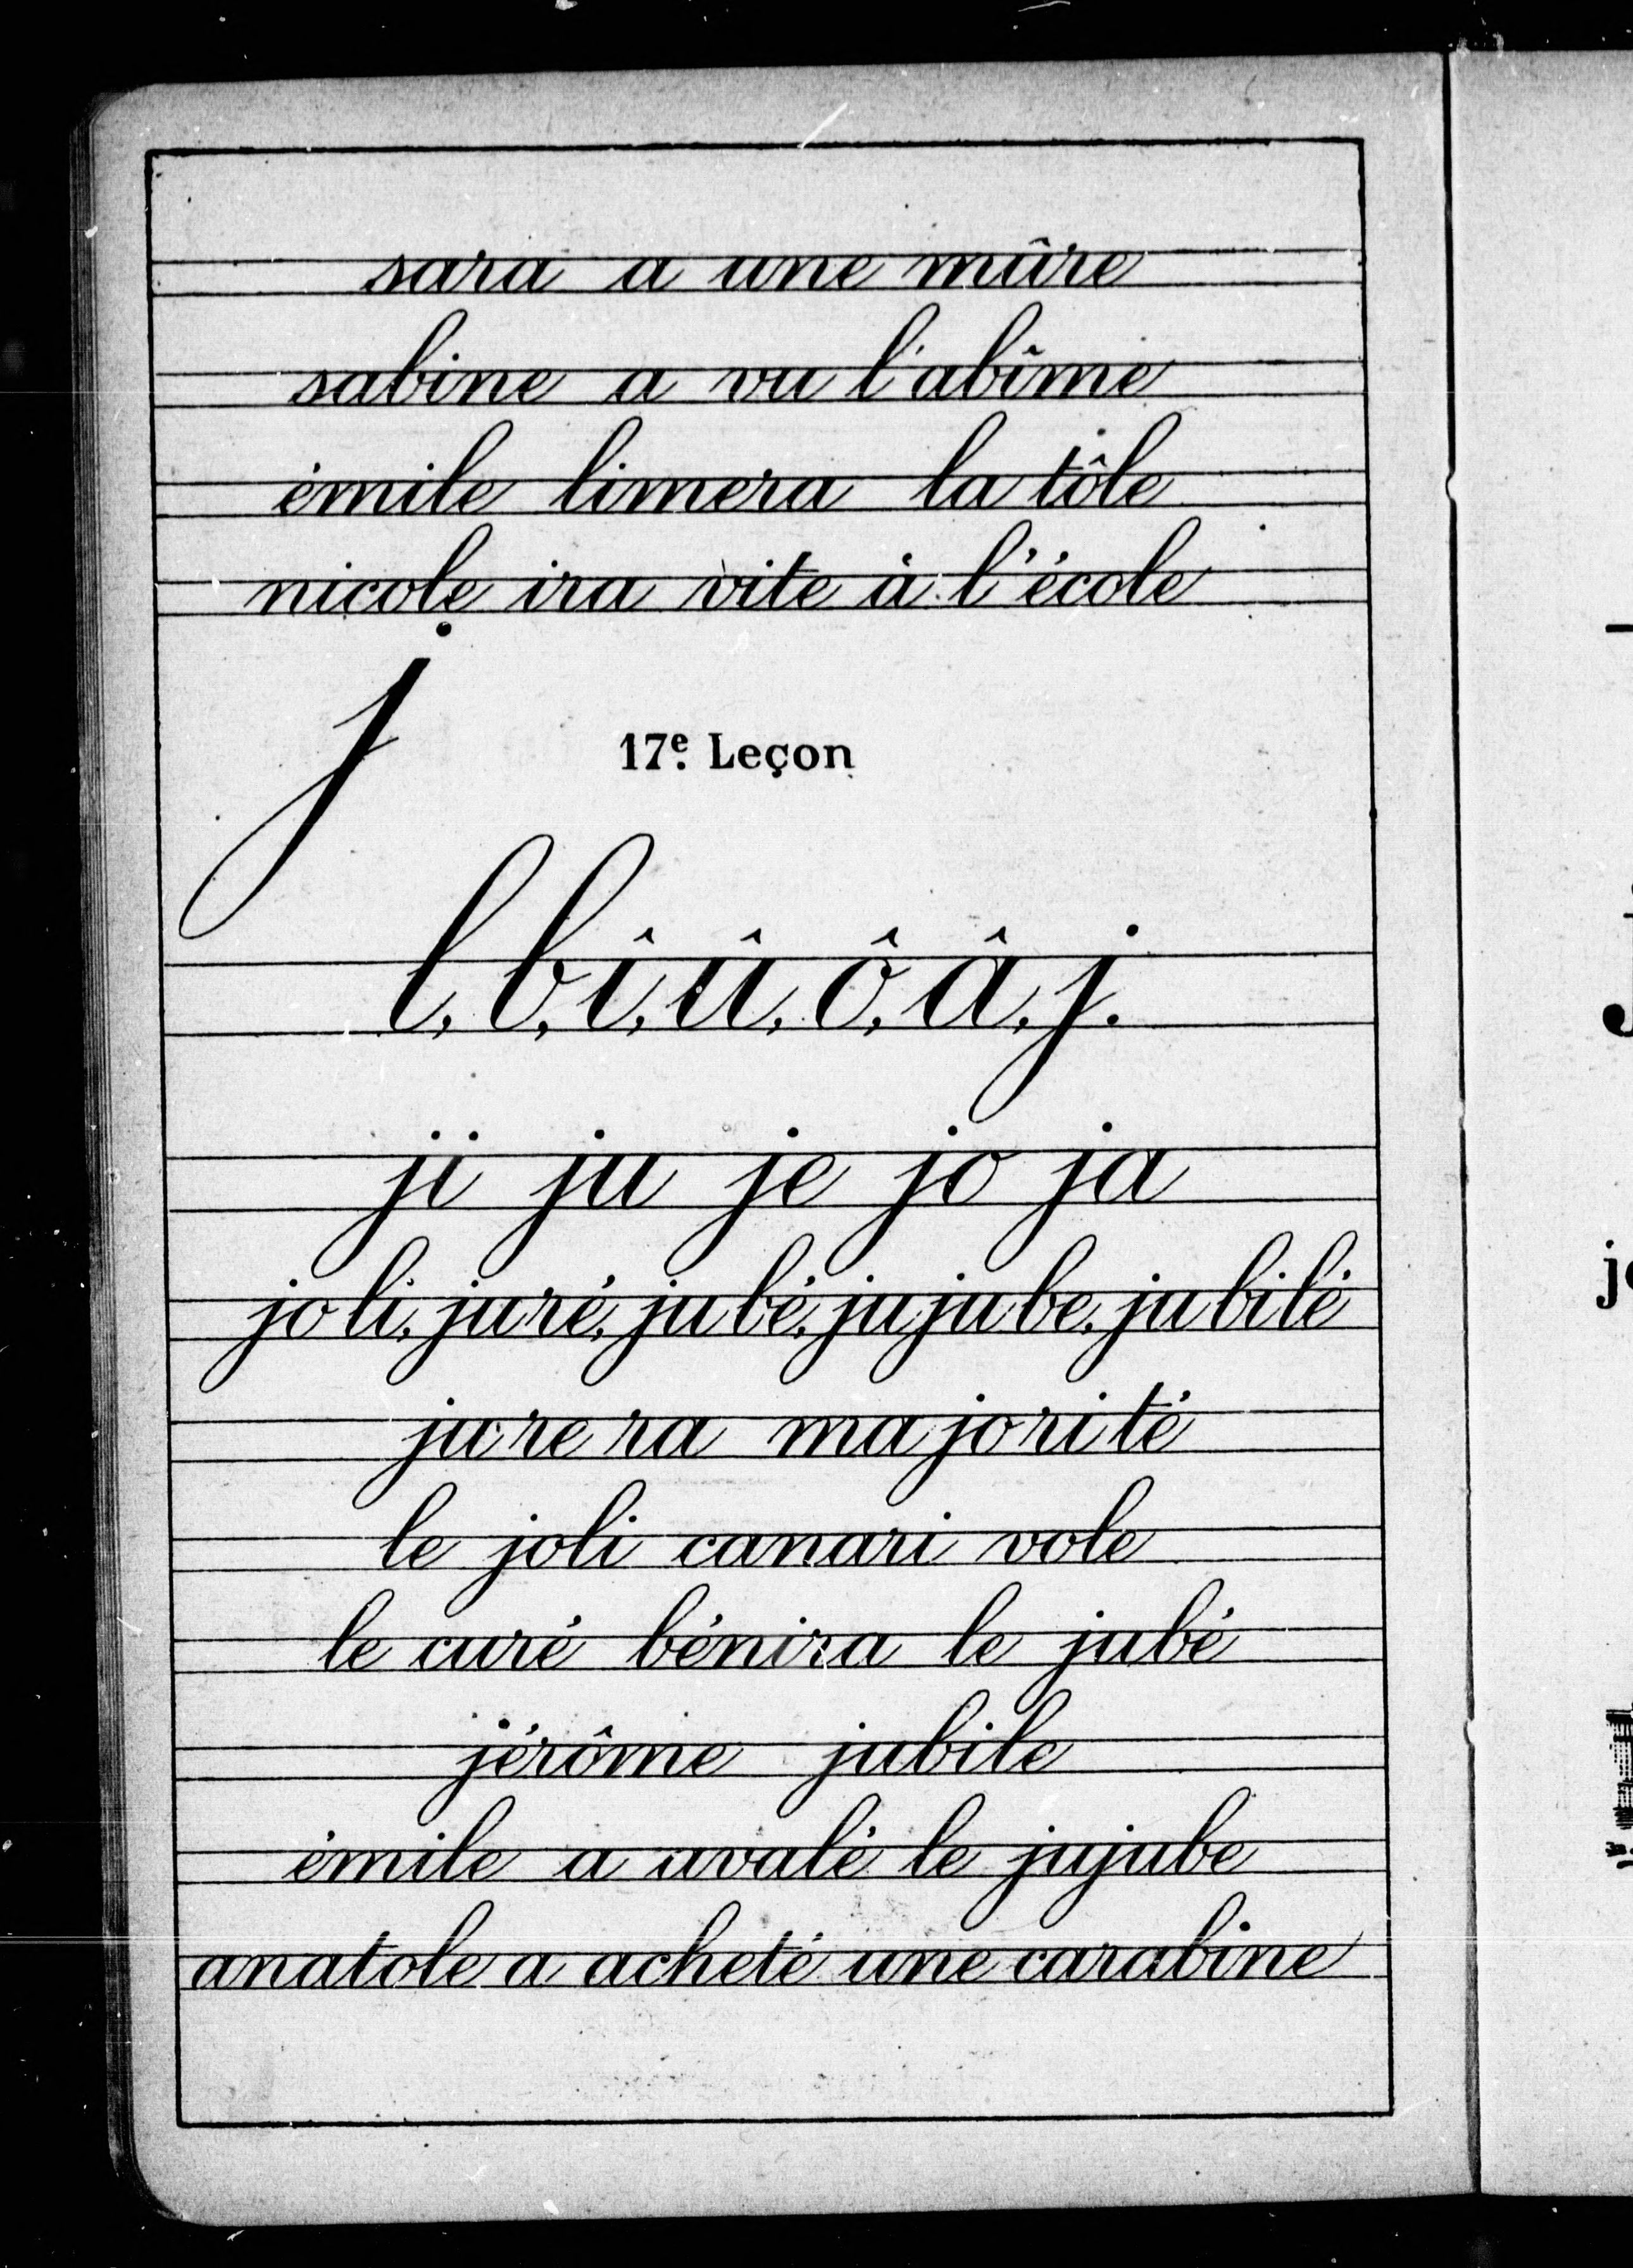 sara a une mûre
sabine a vu l'abîme
émile limera la tôle
nicole ira vite à l'école
j
17e. Leçon
l, b, î, û, ô, â, j.
ji ju je jo ja
joli, juré, jubé, jujube, jubilé
jurera majorité
le joli canari vole
le curé bénira le jubé
jérôme jubile
émile a avalé le jujube
anatole a acheté une carabine